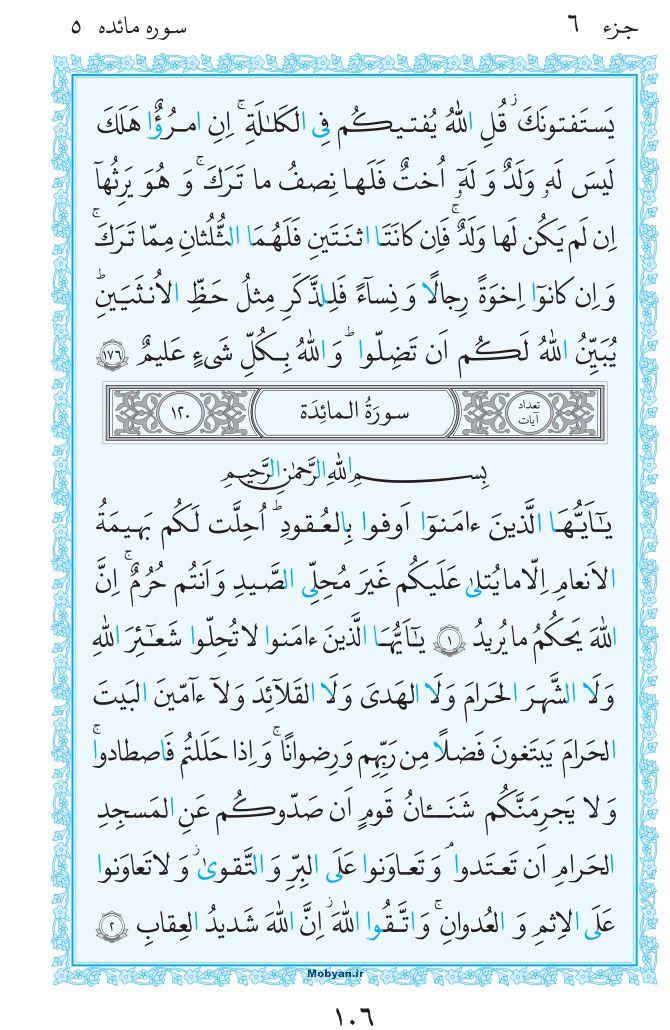 جزء ۶ سوره مائده ۵
يَستَفتونَكَ قُلِ اللهُ يُفتيكُم فِى الكَلٰلَةِ ۚ اِنِ امرُؤٌا هَلَكَ
لَيسَ لَهٗ وَلَدٌ وَ لَهٗٓ اُختٌ فَلَها نِصفُ ما تَرَكَ ۚ وَ هُوَ يَرِثُهآ
اِن لَم يَكُن لَها وَلَدٌ ۚ فَاِن كانَتَا اثنَتَينِ فَلَهُمَا الثُّلُثانِ مِمّا تَرَكَ ۚ
وَ اِن كانوٓا اِخوَةً رِجالًا وَ نِسآءً فَلِلذَّكَرِ مِثلُ حَظِّ الاُنثَيَينِ ؕ
يُبَيِّنُ اللهُ لَكُم اَن تَضِلّوا ؕ وَ اللهُ بِكُلِّ شَىءٍ عَليمٌ ۱۷۶
تعداد آیات سورَةُ المائِدَة ۱۲۰
بِسمِ اللهِ الرَّحمٰنِ الرَّحيمِ
يٰٓاَيُّهَا الَّذينَ ءامَنوٓا اَوفوا بِالعُقودِ ؕ اُحِلَّت لَكُم بَهيمَةُ
الاَنعامِ اِلّا ما يُتلىٰ عَلَيكُم غَيرَ مُحِلِّى الصَّيدِ وَ اَنتُم حُرُمٌ ۚ اِنَّ
اللهَ يَحكُمُ ما يُريدُ ۱ يٰٓاَيُّهَا الَّذينَ ءامَنوا لا تُحِلّوا شَعٰٓئِرَ اللهِ
وَلَا الشَّهرَ الحَرامَ وَلَا الهَدىَ وَلَا القَلآئِدَ وَلآ ءآمّينَ البَيتَ
الحَرامَ يَبتَغونَ فَضلًا مِن رَبِّهِم وَ رِضوانًا ۚ وَ اِذا حَلَلتُم فَاصطادوا ۚ
وَلا يَجرِمَنَّكُم شَنَـٔانُ قَومٍ اَن صَدّوكُم عَنِ المَسجِدِ
الحَرامِ اَن تَعتَدوا ۘ وَ تَعاوَنوا عَلَى البِرِّ وَ التَّقوىٰ وَ لا تَعاوَنوا
عَلَى الاِثمِ وَ العُدوانِ ۚ وَ اتَّقُوا اللهَ اِنَّ اللهَ شَديدُ العِقابِ ۲
Mobyan.ir
۱۰۶